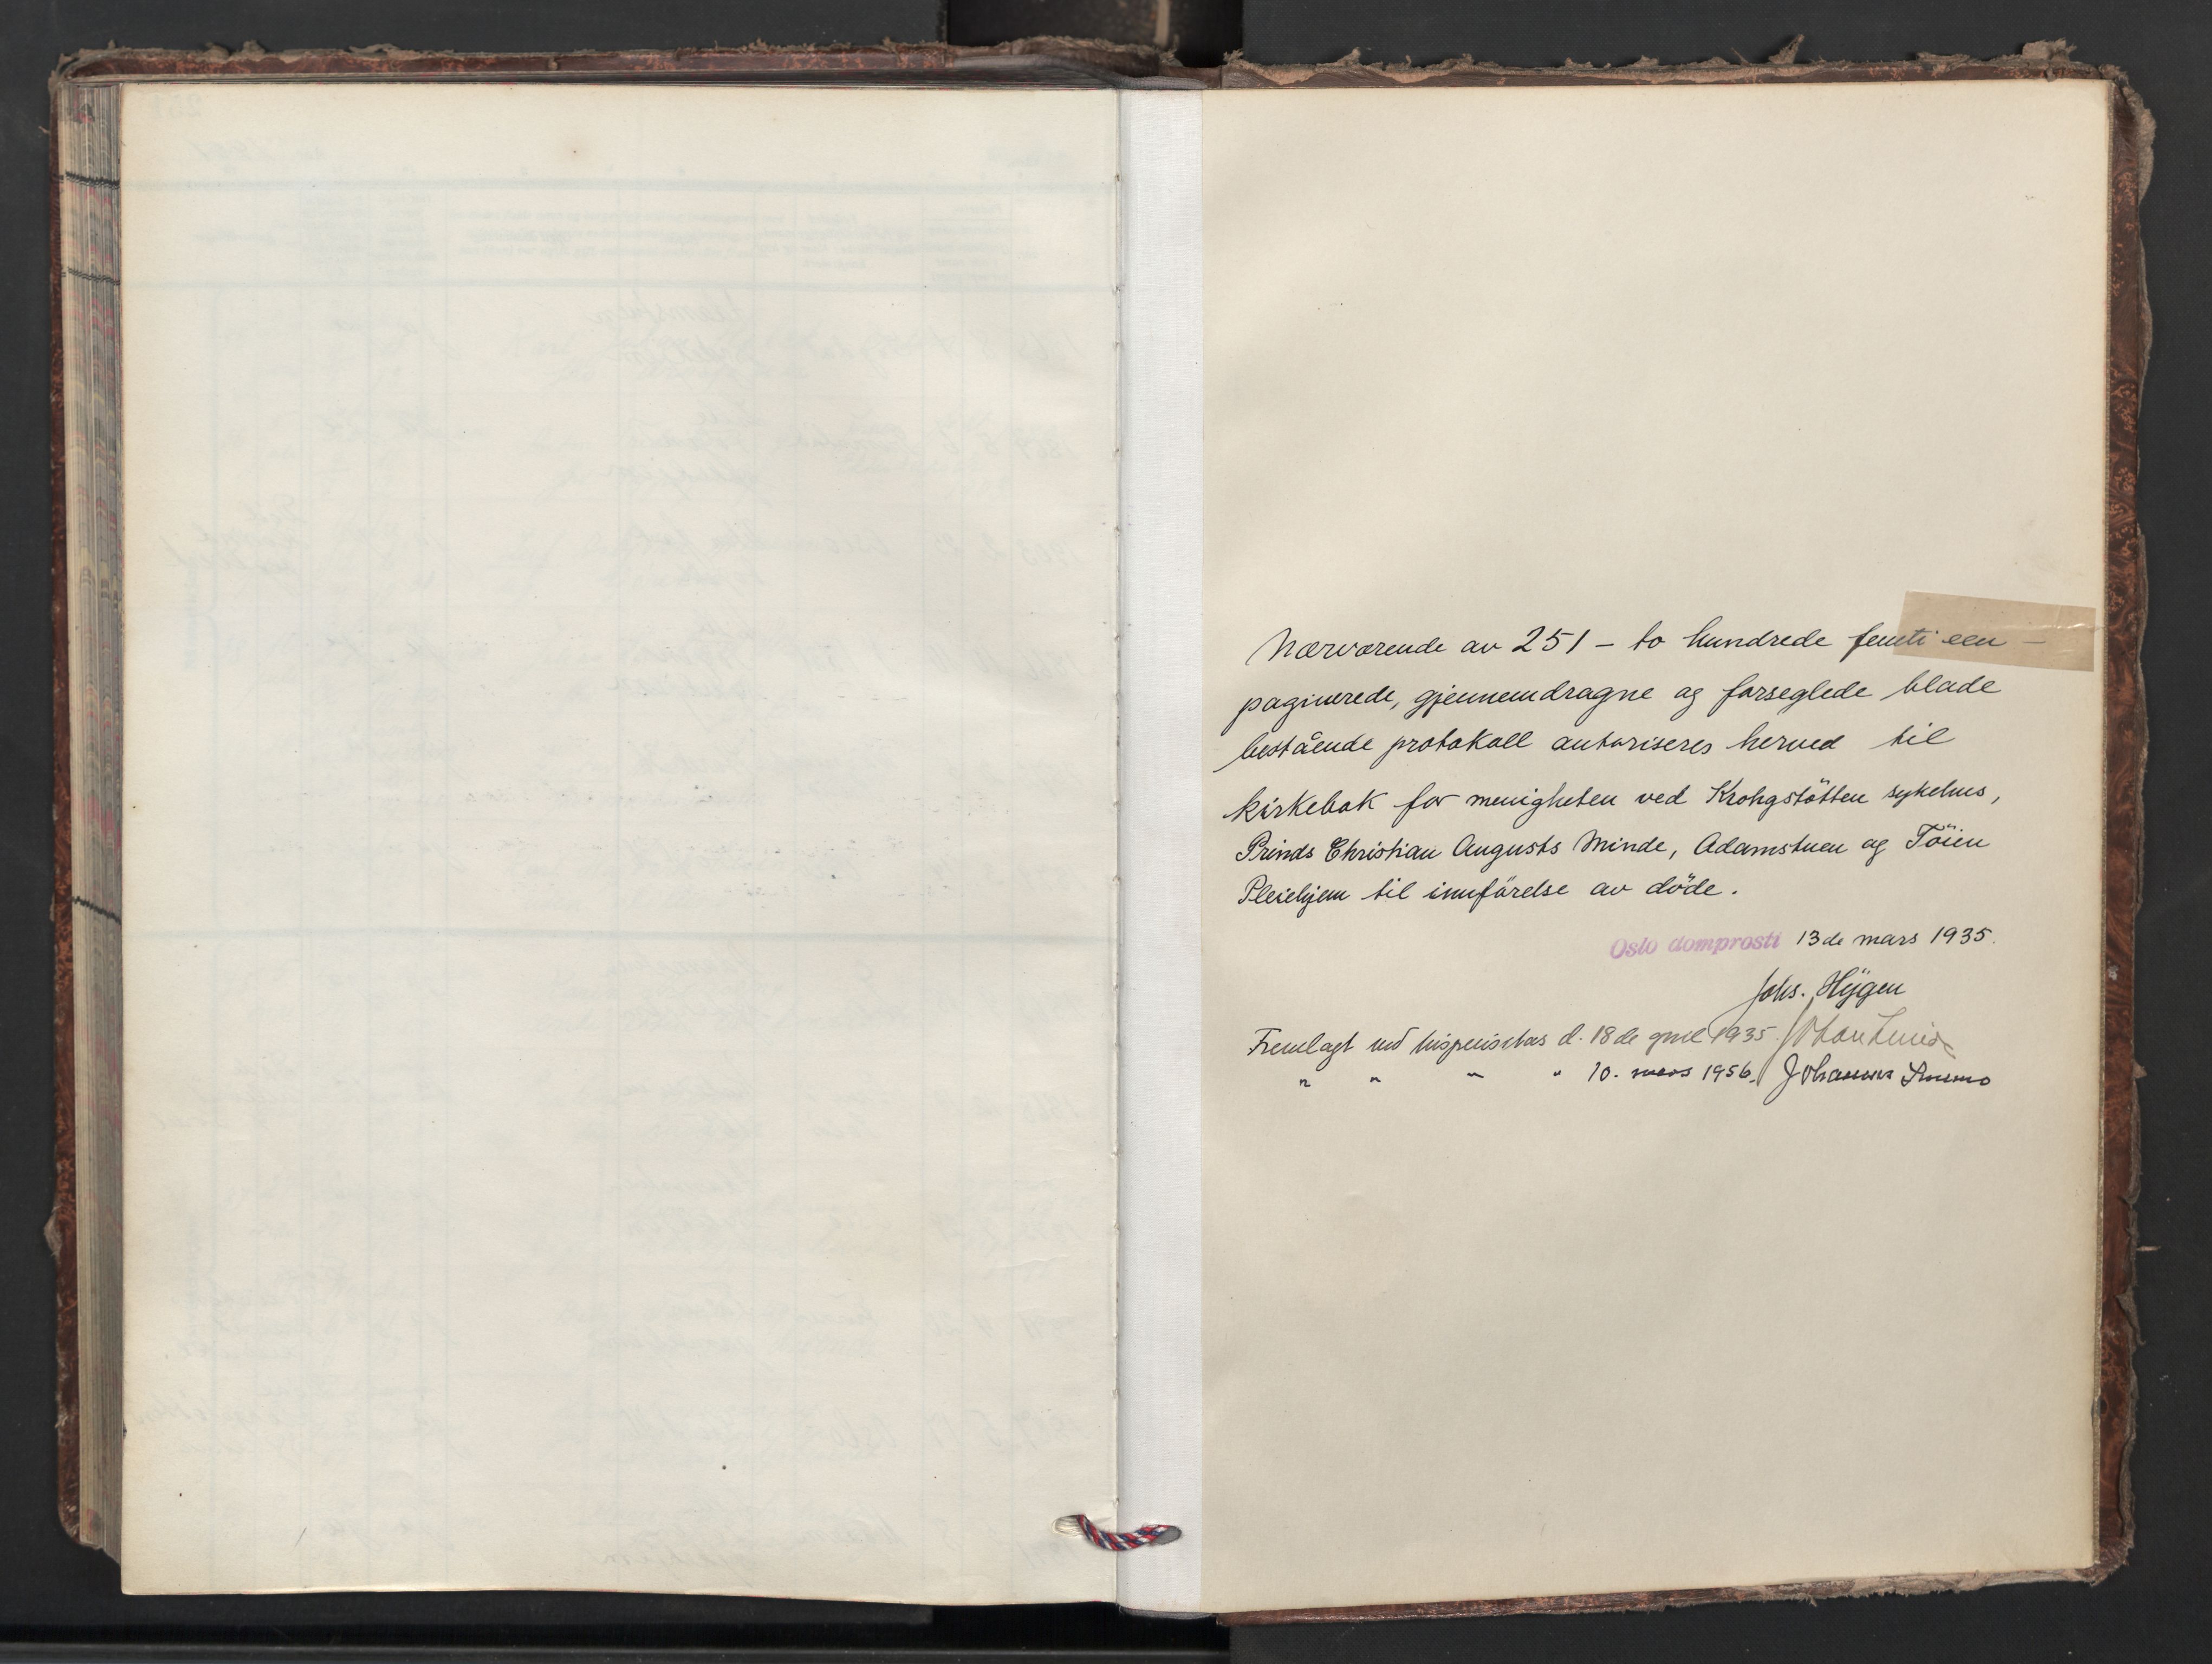 Nærværende av 251 – to hundrede femti een –
paginerede, gjennemdragne og forseglede blade
bestående protokoll autoriseres herved til
kirkebok for menigheten ved Krohgstötten sykehus,
Prinds Christian Augusts Minde, Adamstuen og Töien
Pleiehjem til innförelse av döde.
Oslo domprosti 13de mars 1935.
Johs. Hÿgen
Fremlagt ved bispevisitas d. 18de 1935 Johan Lunde
" " " " 10. mars 1956. Johannes Smemo